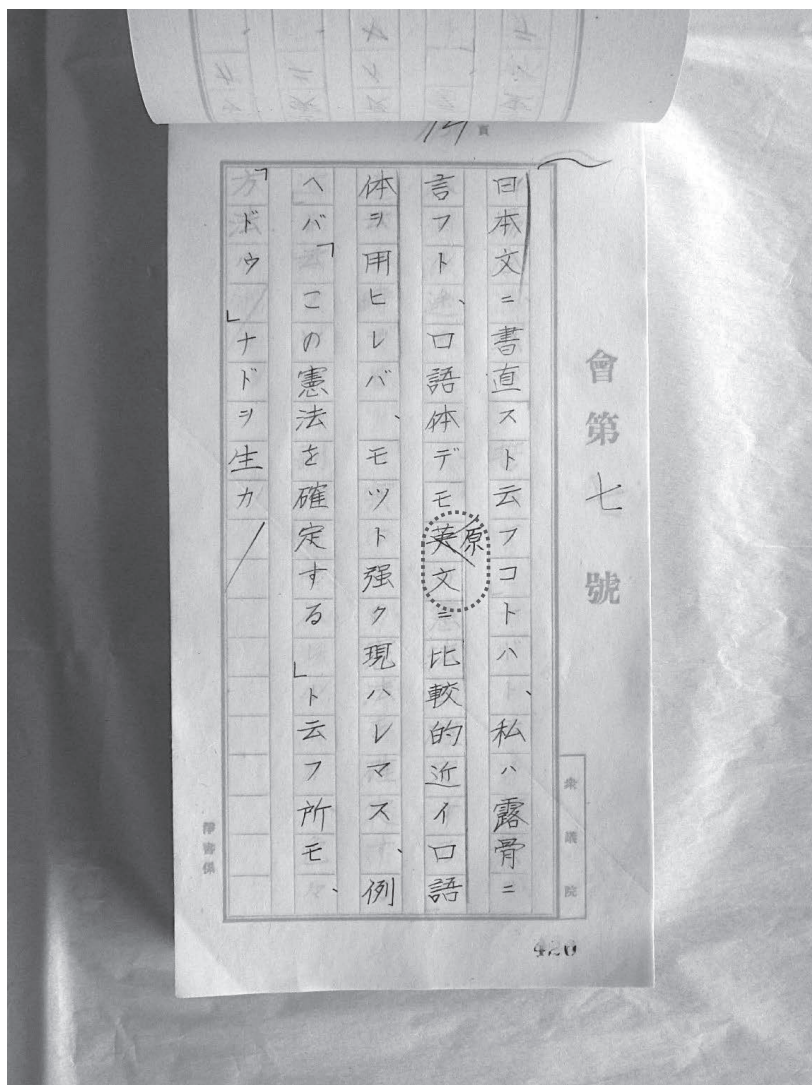 14頁
會第七號
日本文ニ書直スト云フコトハ、私ハ露骨ニ
言フト、口語体デモ英原文ニ比較的近イ口語
体ヲ用ヒレバ、モツト强ク現ハレマス、例
ヘバ「この憲法を確定する」ト云フ所モ、
「方ドウ」ナドヲ生カ
衆議院
淨書係
420